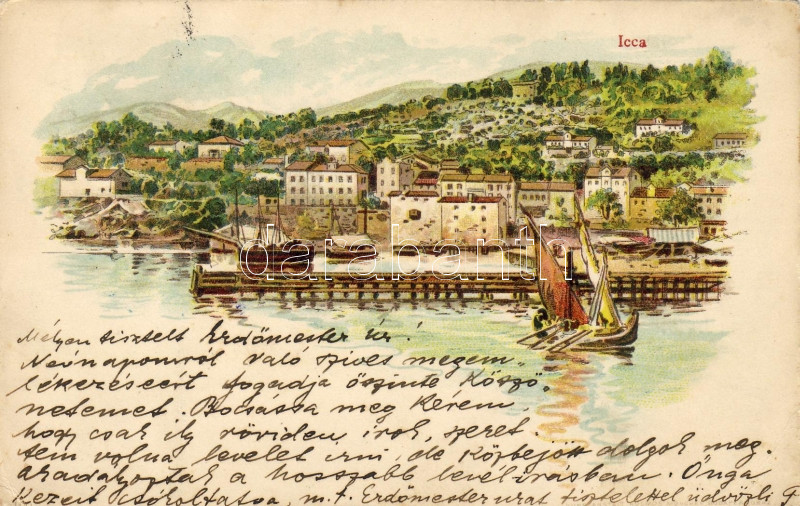 Icca
darabanth
Mélyen tisztelt Erdőmester úr!
Neónapomról való szives megem-
lékezéseért fogadja őszinte köszö-
netemet. Bocsássa meg kérem,
hogy csak ily röviden, irok, szeret-
tem volna levelet irni, de közbejött dolgok meg-
akadályoztak a hosszabb levélirásban. Önga
Kezeit csókoltatva, m. t. Erdőmester urat tisztelettel üdvözli